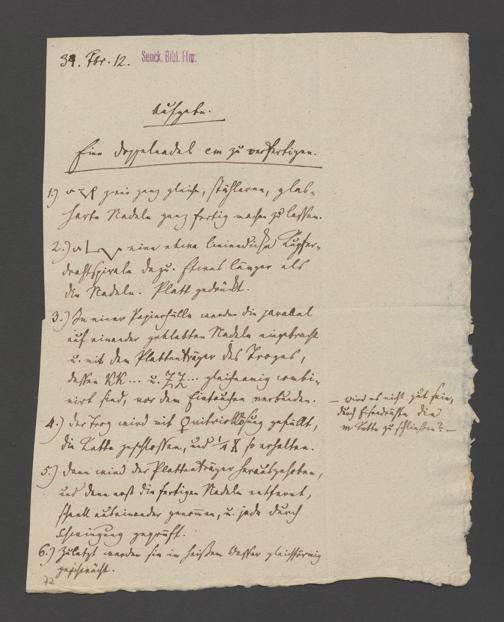 34. Fbr. 12. Senck. Bibl. Ffm.
Aufgabe.
Eine Doppelnadel zu verfertigen.
1.) zwei ganz gleiche, stählerne, glas-
harte Nadeln ganz fertig machen zu lassen.
2.) eine Kupfer-
drahtspirale dazu. Etwas länger als
die Nadeln. Platt gedrückt.
3.) In einer Papierhülle werden die parallel
auf einander geklebten Nadeln eingebracht
u. mit dem Plattenträger des Troges,
dessen KK ... u. ZZ ... gleichnamig combi-
nirt sind, vor dem Eintauchen verbunden.
4.) Der Trog wird mit gefüllt,
die Kette geschlossen, und so erhalten.
5.) Dann wird der Plattenträger herausgehoben,
und dann erst die fertigen Nadeln entfernt,
schnell auseinander genommen, u. jede durch
Schwingung geprüft.
6.) Zuletzt werden sie in heißem Wasser gleichförmig
geschwächt.
— wird es nicht gut sein,
durch die
Kette zu schließen? —
72